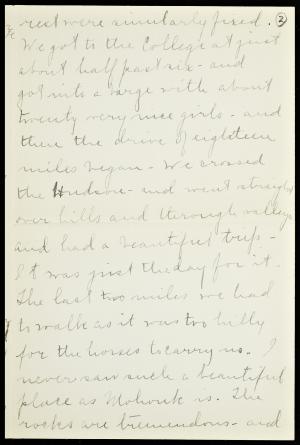 rest were similarly fixed. 2
We got to the College at just
about half past six - and
got into a barge with about
twenty very nice girls - and
then the drive of eighteen
miles began - We crossed
the Hudson - and went straight
over hills and through valleys
and had a beautiful trip -
It was just the day for it.
The last two miles we had
to walk as it was too hilly
for the horses to carry us. I
never saw such a beautiful
place as Mohonk is. The
rocks are tremendous - and